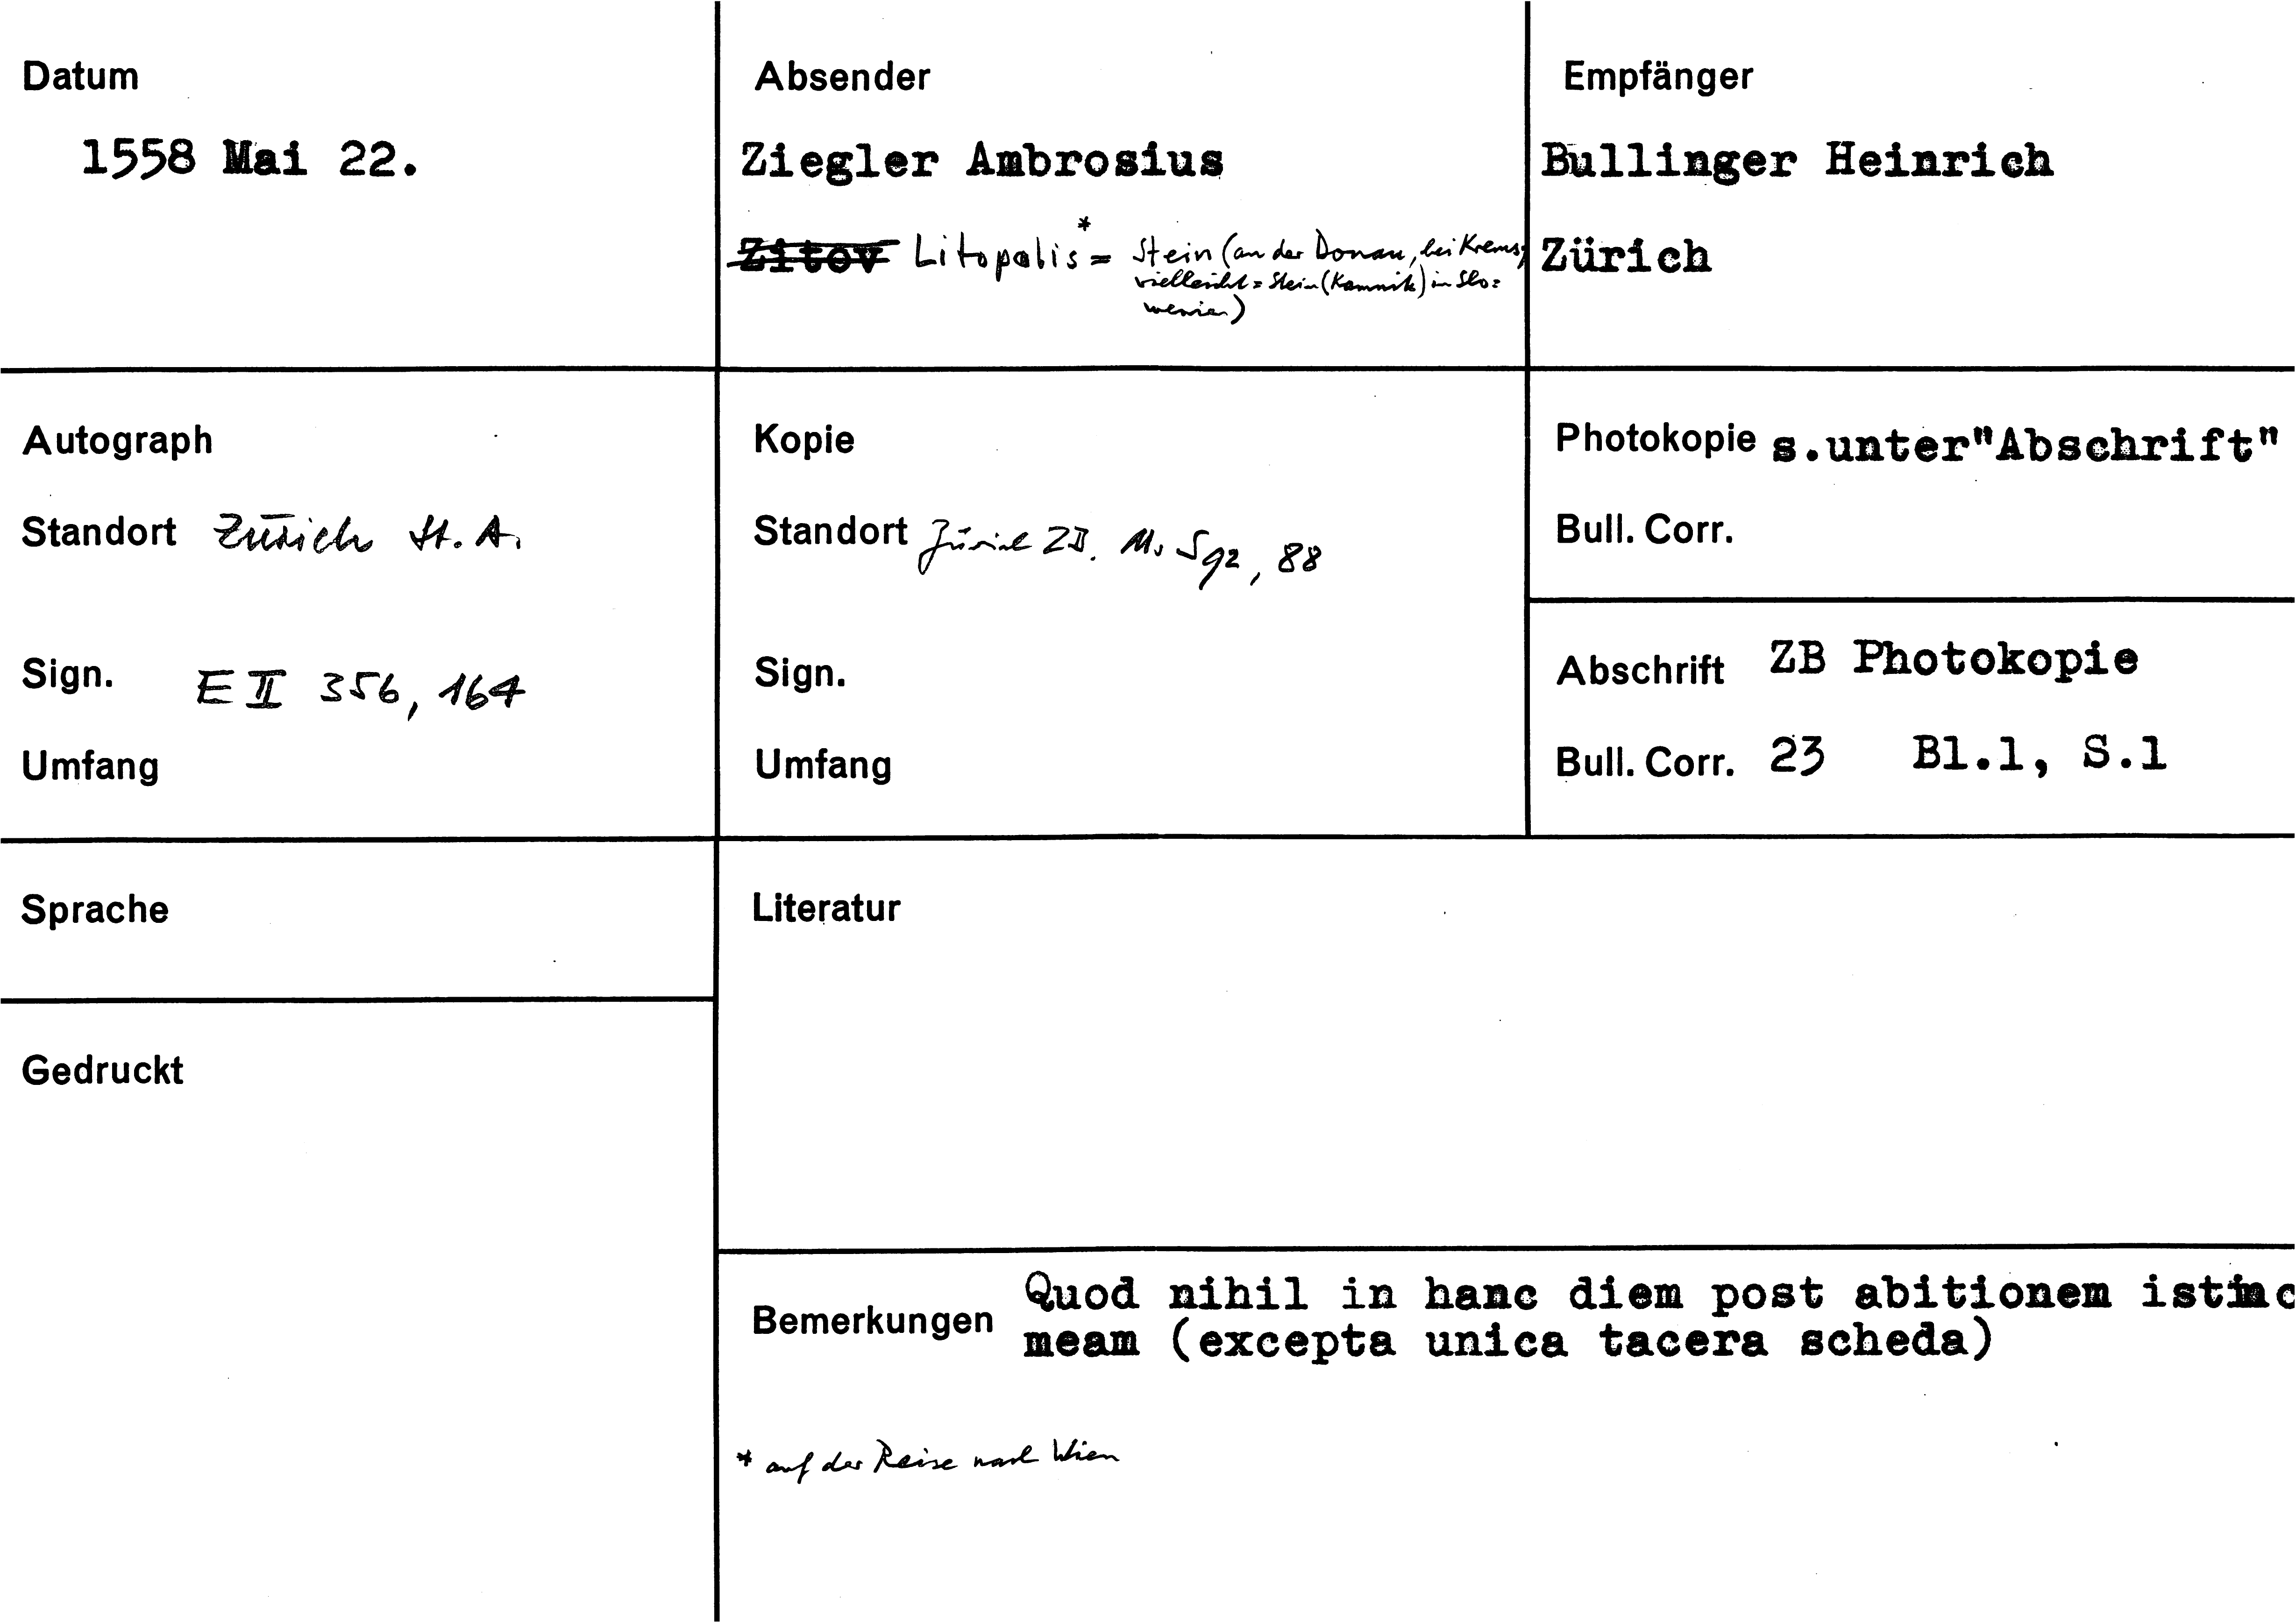 Datum
1558 Mai 22.
Absender
Ziegler Ambrosius
Zitov Litopolis* = Stein (an der Donau, bei Krems;
vielleicht = Stein (Kamnik) in Slo=
wenien)
Empfänger
Bullinger Heinrich
Zürich
Autograph
Standort Zürich St. A.
Sign. E II 356, 164
Umfang
Kopie
Standort Zürich ZB. Ms S 92, 88
Sign.
Umfang
Photokopie s.unter"Abschrift"
Bull. Corr.
Abschrift ZB Photokopie
Bull. Corr. 23 Bl.1, S.1
Sprache
Gedruckt
Literatur
Bemerkungen Quod nihil in hanc diem post abitionem istinc
meam (excepta unica tacera scheda)
* auf der Reise nach Wien